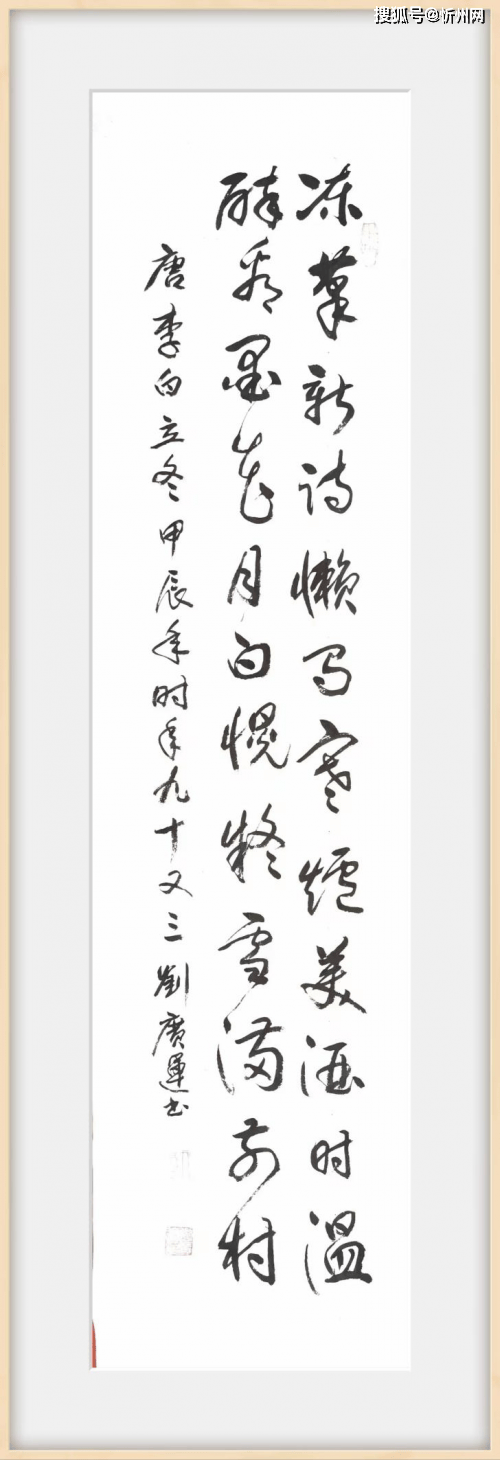 搜狐号@忻州网
冻筆新诗懒写寒爐美酒时温
醉看墨花月白愰疑雪满前村
唐李白立冬甲辰年时年九十又三劉廣運书